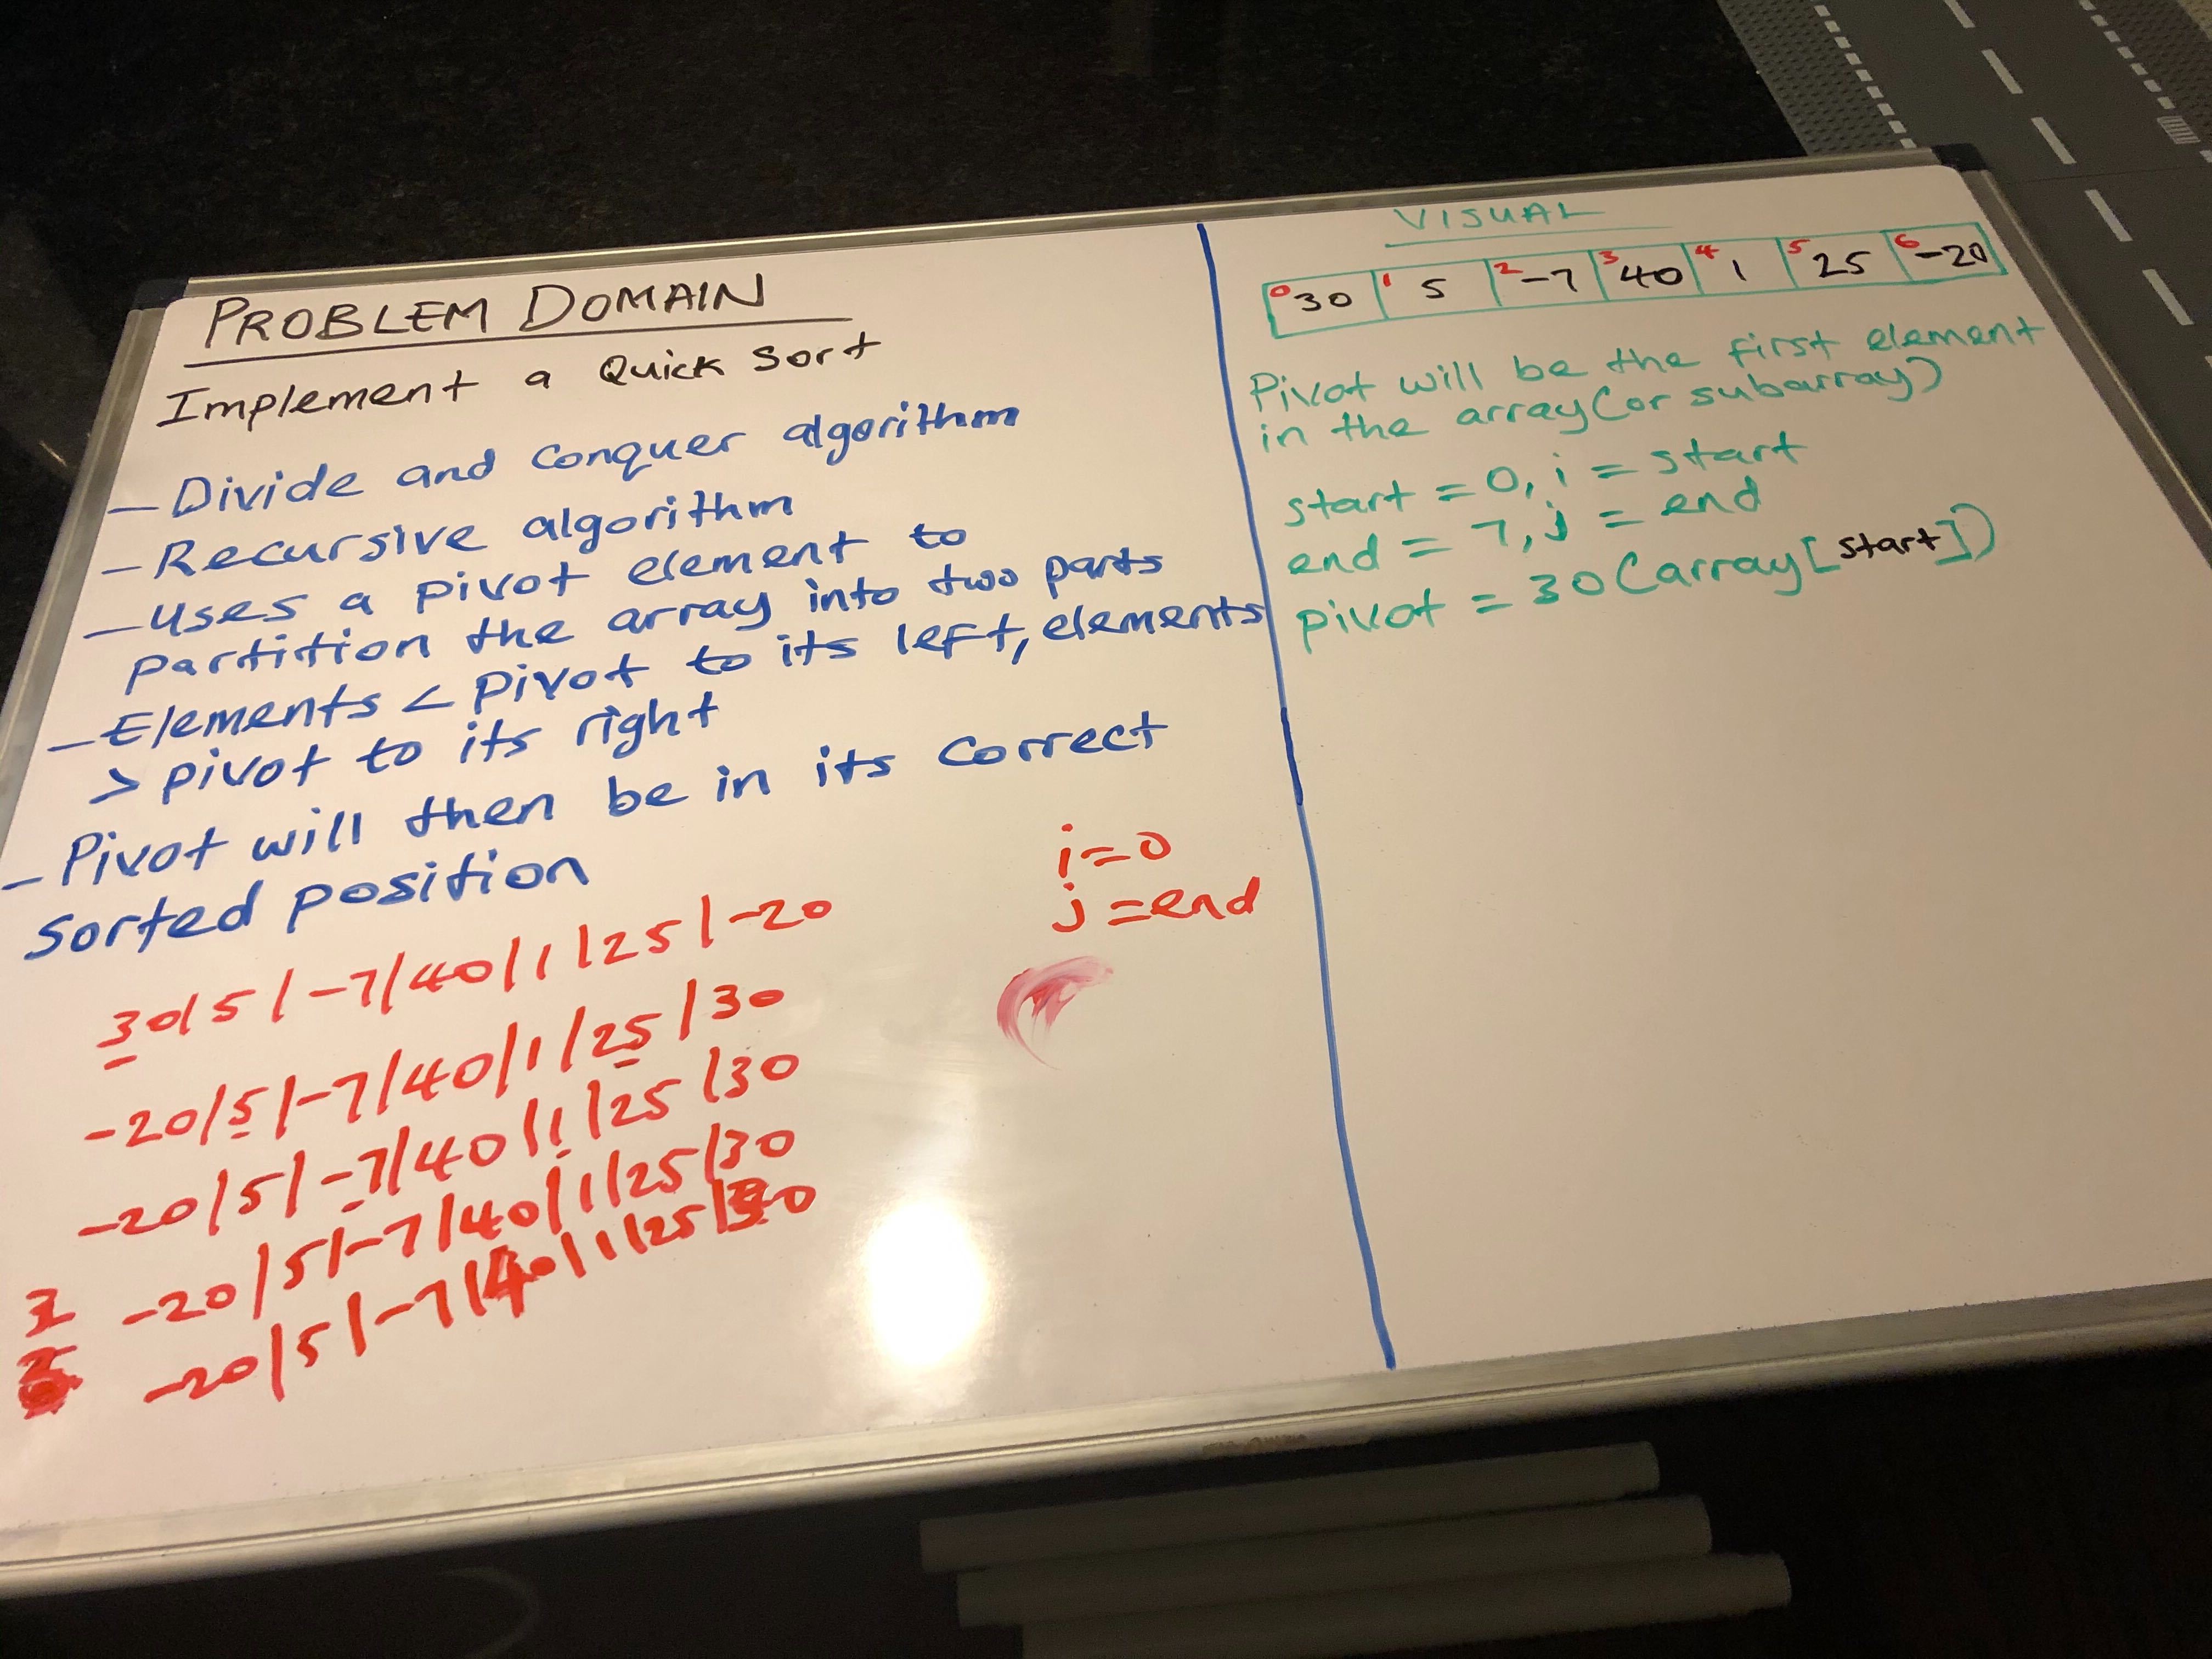 PROBLEM DOMAIN
Implement a Quick Sort
- Divide and conquer algorithm
- Recursive algorithm
- Uses a pivot element to
partition the array into two parts
- Elements < pivot to its left, elements
> pivot to its right
- Pivot will then be in its correct
sorted position
i=0
j=end
30|5|-7|40|1|25|-20
-20|5|-7|40|1|25|30
-20|5|-7|40|1|25|30
-20|5|-7|40|1|25|30
-20|5|-7|40|1|25|30
VISUAL
0 30 1 5 2 -7 3 40 4 1 5 25 6 -20
Pivot will be the first element
in the array (or subarray)
start = 0, i = start
end = 7, j = end
pivot = 30 (array[start])